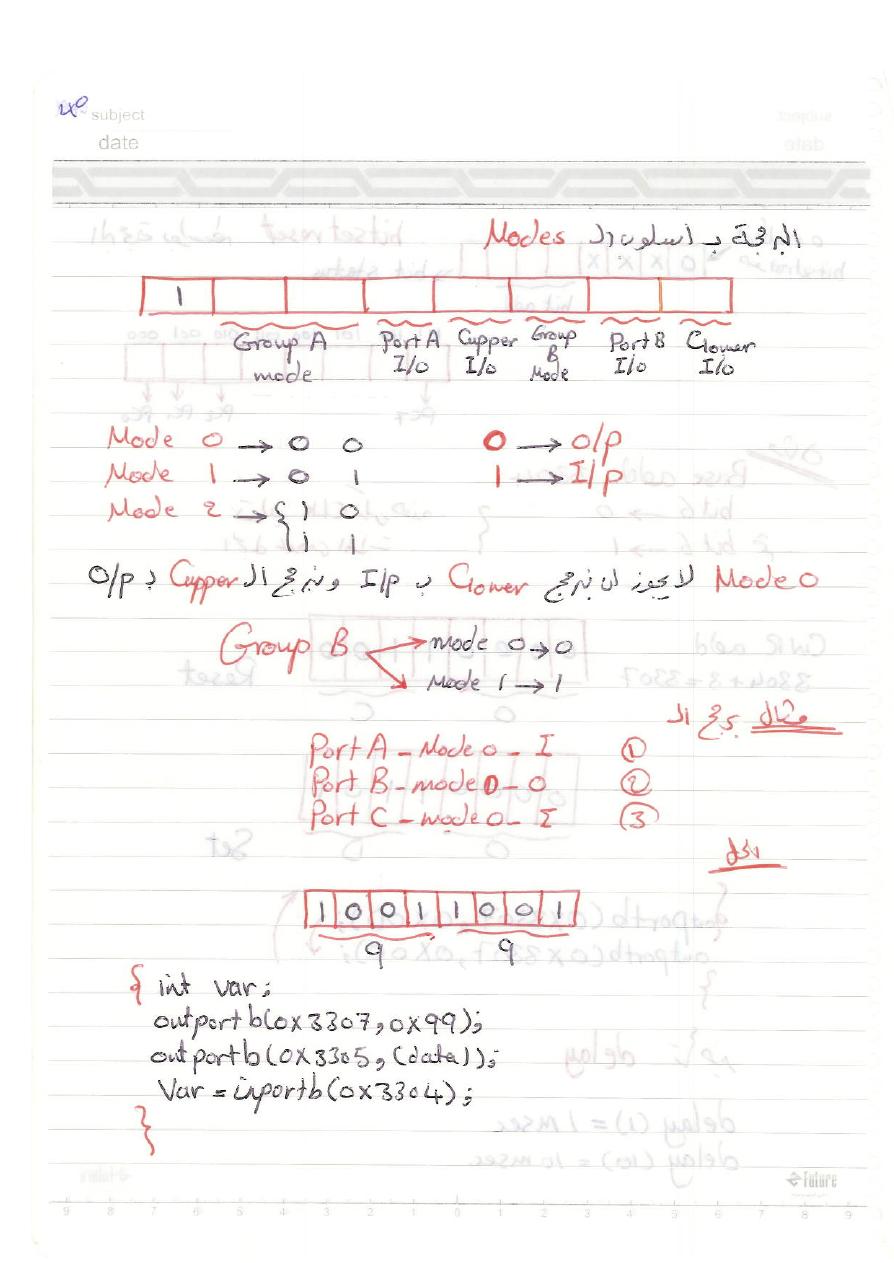 subject
date
البرمجة بـ اسلوب الـ Modes
1
Group A mode
Port A I/O
Cupper I/O
Group B Mode
Port B I/O
Clower I/O
Mode 0 → 0 0
0 → O/p
Mode 1 → 0 1
1 → I/p
Mode 2 → { 1 0
1 1
Mode 0 لا يجوز ان نبرمج Clower بـ I/p ونبرمج الـ Cupper بـ O/p
Group B
mode 0 → 0
Mode 1 → 1
مثال برمج الـ
Port A - Mode 0 - I ①
Port B - mode 0 - O ②
Port C - mode 0 - I ③
1 0 0 1 1 0 0 1
9 9
{ int var;
outportb(0x3307,0x99);
outportb(0x3305,(data));
Var = inportb(0x3304);
}
Future
9 8 7 6 5 4 3 2 1 0 1 2 3 4 5 6 7 8 9